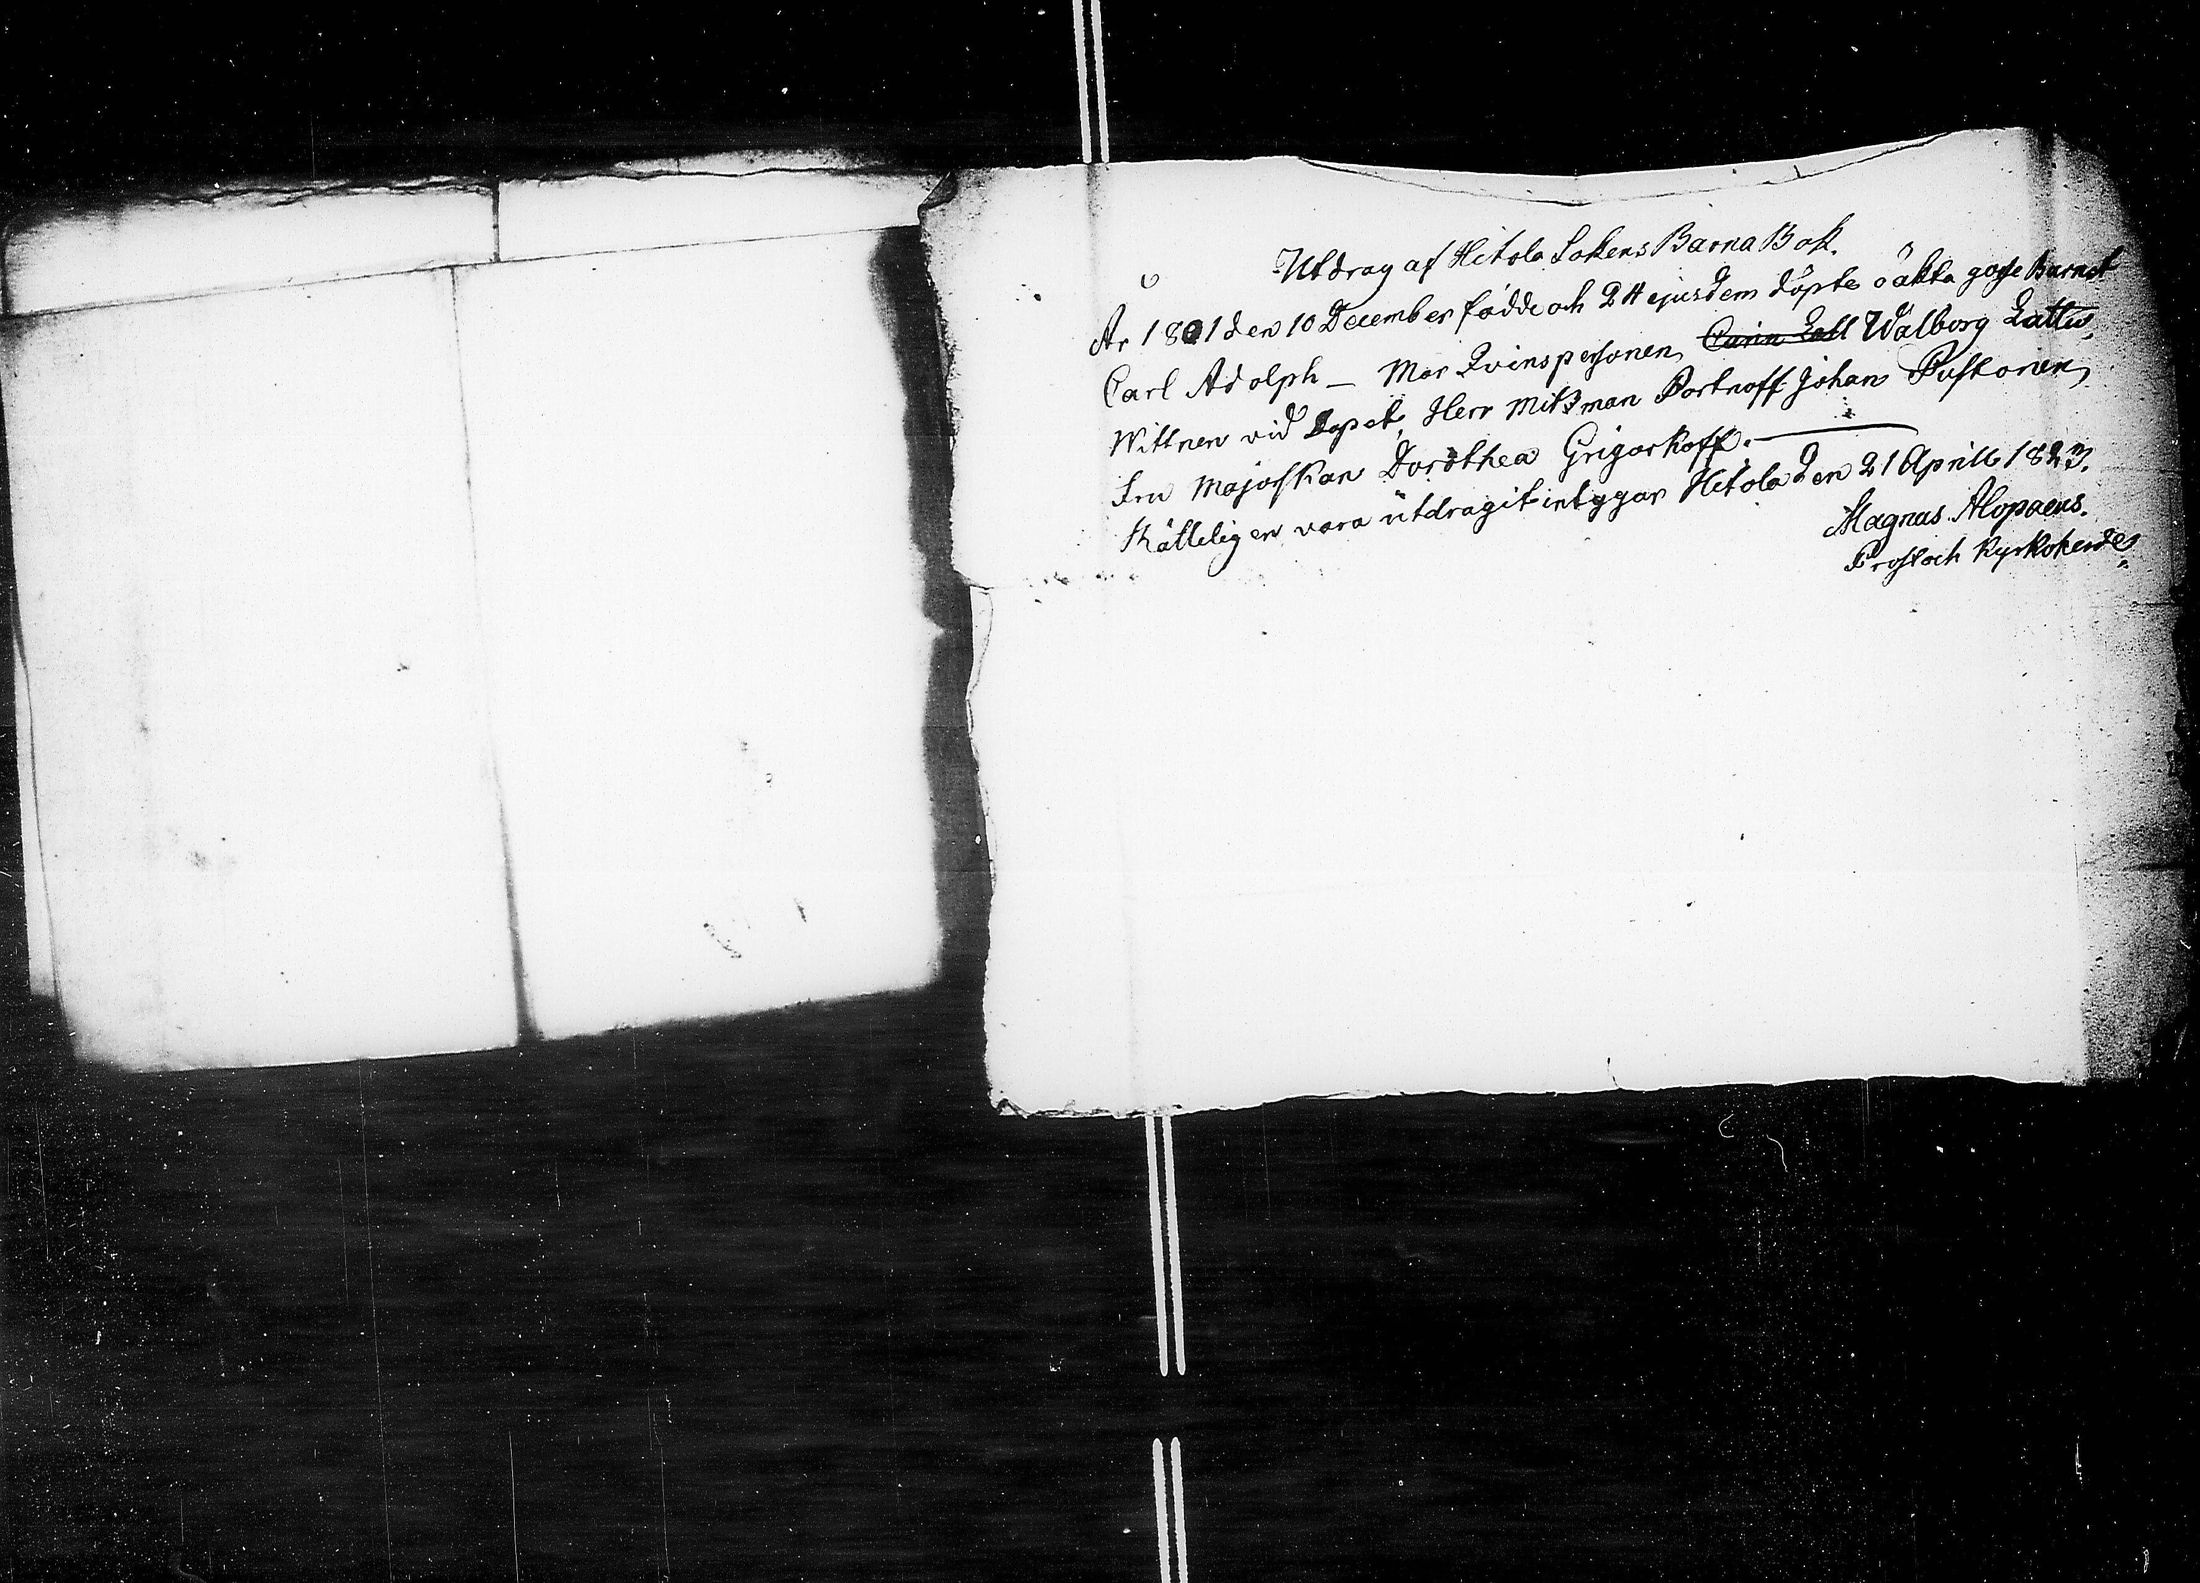 Utdrag af Hitola Sokens Barna Bok.
År 1801 den 10 December födde och 24 ejusdem döpte oäkta gosse Barnet
Carl Adolph — Mor Qvinspersonen Walborg Lattu,
Wittnen vid Dopet, Herr Mitsman Portnoff Johan Pustonen,
Fru Majorskan Dorothea Grigorkoff.
Rätteligen vara utdragit intygar Hitola den 21 Aprill 1823.
Magnus Alopaeus.
Prost och Kyrkoherde